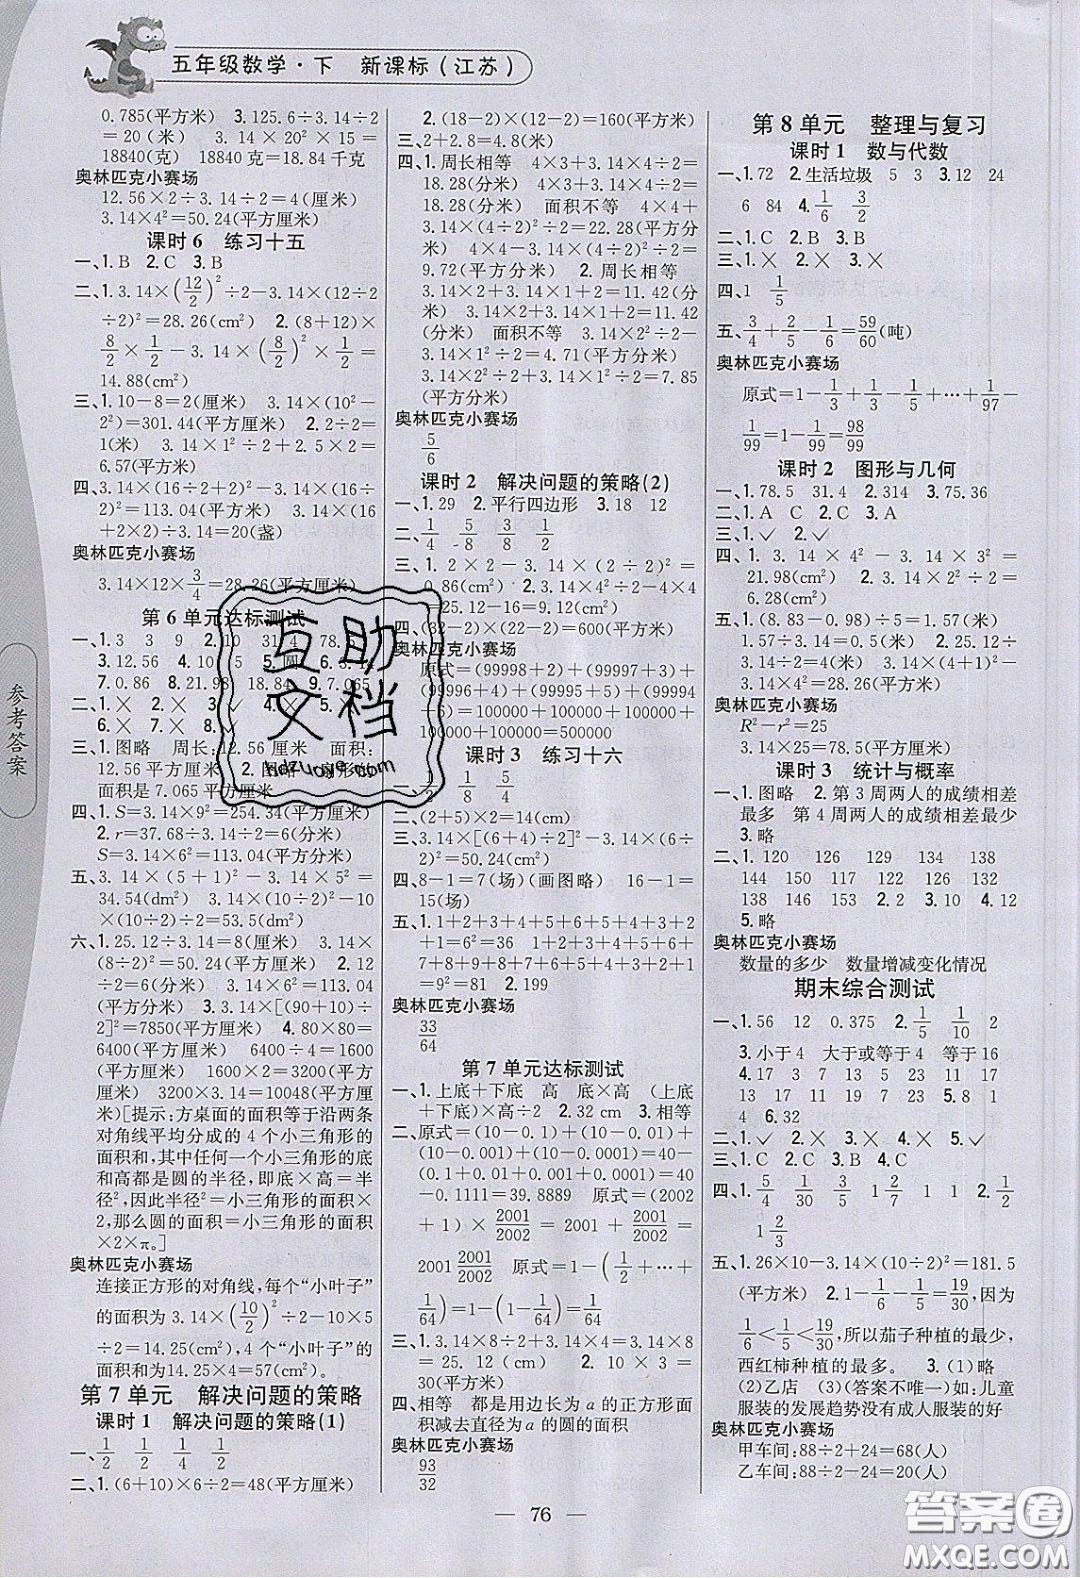 五年级数学·下 新课标(江苏)
0.785(平方米) 3.125.6÷3.14÷2
=20(米) 3.14×20²×15=
18840(克) 18840克=18.84千克
奥林匹克小赛场
12.56×2÷3.14÷2=4(厘米)
3.14×4²=50.24(平方厘米)
课时6 练习十五
一、1.B 2.C 3.B
二、1.3.14×(12/2)²÷2-3.14×(12÷2
÷2)²=28.26(cm²) 2.(8+12)×
8/2×1/2-3.14×(8/2)²×1/2=
14.88(cm²)
三、1.10-8=2(厘米) 3.14×(10²-
2²)=301.44(平方厘米) 2.2÷2=
1(米) 3.14×1²÷2+2.5×2=
6.57(平方米)
四、3.14×(16÷2+2)²-3.14×(16
÷2)²=113.04(平方米) 3.14×(16
+2×2)÷3.14=20(盏)
奥林匹克小赛场
3.14×12×3/4=28.26(平方厘米)
第6单元达标测试
一、1.3 3 9 2.10 31.4 78.5
3.12.56 4.10 5.圆 6.3.14
7.0.86 8.21.98 18.84 9.7.065
二、1.× 2.× 3.× 4.× 5.×
6.× 7.× 8.√
三、1.图略 周长:12.56厘米 面积:
12.56平方厘米 2.图略
面积是7.065平方厘米
四、1.S=3.14×9²=254.34(平方米)
2.r=37.68÷3.14÷2=6(分米)
S=3.14×6²=113.04(平方分米)
五、3.14×(5+1)²-3.14×5²=
34.54(dm²) 3.14×(10÷2)²-10×
(10÷2)÷2×2=53.5(dm²)
六、1.25.12÷3.14=8(厘米) 3.14×
(8÷2)²=50.24(平方厘米) 2.12
÷2=6(米) 3.14×6²=113.04
(平方米) 3.3.14×[(90+10)÷
2]²=7850(平方厘米) 4.80×80=
6400(平方厘米) 1600×2=3200
(平方厘米) 6400÷4=1600(平方
厘米) 3200×3.14=10048(平方厘
米)[提示:方桌面的面积等于沿两条
对角线平均分成的4个小三角形的
面积和,其中任何一个小三角形的底
和高都是圆的半径,即底×高=半
径²,因此半径²=小三角形的面积×
2,那么圆的面积=小三角形的面积
×2×π。]
奥林匹克小赛场
连接正方形的对角线,每个“小叶子”
的面积为3.14×(10/2)²÷2-10×5
÷2=14.25(cm²),4个“小叶子”的
面积和为14.25×4=57(cm²)。
第7单元 解决问题的策略
课时1 解决问题的策略(1)
一、1/2 1/2 1/4 1/2
二、1.(6+10)×6÷2=48(平方厘米)
2.(18-2)×(12-2)=160(平方米)
三、2+2.8=4.8(厘米)
四、1.周长相等 4×3+3.14×4÷2=
18.28(分米) 4×3+3.14×4÷2=
18.28(分米) 面积不等 4×4+
3.14×(4÷2)²÷2=22.28(平方分
米) 4×4-3.14×(4÷2)²÷2=
9.72(平方分米) 2.周长相等
3.14×2+3.14×2×2÷2+3.14×
1×2÷2+3.14×1×2÷2=11.42
(分米) 3.14×2+3.14×1=11.42
(分米) 面积不等 3.14×2²÷2-
3.14×1²÷2=4.71(平方分米)
3.14×2²÷2+3.14×1²÷2=7.85
(平方分米)
奥林匹克小赛场
5/6
课时2 解决问题的策略(2)
一、1.29 2.平行四边形 3.18 12
二、1/4 5/8 5/8 1/2
三、1.2×2-3.14×(2÷2)²=
0.86(cm²) 2.4×4÷2-4×4
四、(32-2)×(22-2)=600(平方米)
奥林匹克小赛场
原式=(99998+2)+(99997+3)+
(99996+4)+(99995+5)+(99994
+6)=100000+100000+100000
+100000+100000=500000
课时3 练习十六
一、1/2 1/8 5/4
二、(2+5)×2=14(cm)
三、3.14×[(6+4)÷2]²-3.14×(6÷
2)²=50.24(cm²)
四、8-1=7(场)(画图略) 16-1=
15(场)
五、1.1+2+3+4+5+6+5+4+3+2
+1=6²=36 1+2+3+4+5+6+7
+8+9+8+7+6+5+4+3+2
+1=9²=81 2.199
奥林匹克小赛场
33/64
第7单元达标测试
一、1.上底+下底 高 底×高 (上底
+下底)×高÷2 2.32 cm 3.相等
二、原式=(10-0.1)+(10-0.01)+
(10-0.001)+(10-0.0001)=40-
(0.1+0.01+0.001+0.0001)=40
-0.1111=39.8889 原式=(2002
+1)×2001/2002=2001+2001/2002=
2001 2001/2002 原式=1-(1/2+…+
1/64)=1-(1-1/64)=1/64
三、1.3.14×8÷2+3.14×4÷2+
3.14×2÷2+3.14×2÷2=25.12
(厘米) 2.3×2=6(平方厘米)
四、相等 都是用边长为a的正方形面
积减去直径为a的圆的面积
奥林匹克小赛场
93/32
第8单元 整理与复习
课时1 数与代数
一、1.72 2.生活垃圾 5 3 3.12 24
6 84 4.1/6 3/2
二、1.C 2.B 3.C 4.B
三、1.× 2.× 3.×
四、1 1/5
五、3/4+2/5-1/6=59/60(吨)
奥林匹克小赛场
原式=1-1/3+1/3-1/5+…+1/97-
1/99=1-1/99=98/99
课时2 图形与几何
一、1.78.5 31.4 2.314 3.75.36
二、1.A C 2.C
三、1.√ 2.√
四、1.3.14×4²-3.14×3²=
21.98(cm²) 2.3.14×2²÷2=
6.28(cm²)
五、1.(8.83-0.98)÷5=1.57(米)
1.57÷3.14=0.5(米) 2.25.12÷
3.14=8(厘米) 8÷2-1=3(厘米)
3.14×3²=28.26(平方厘米)
奥林匹克小赛场
R²-r²=25
3.14×25=78.5(平方厘米)
课时3 统计与概率
一、1.图略 2.第3周两人的成绩相差
最多 第4周两人的成绩相差最少
3.略
二、1.120 126 129 134 138
144 150 132 134 142 138
142 138 146 2.8 3.10 4.12
5.略
奥林匹克小赛场
数量的多少 数量增减变化情况
期末综合测试
一、1.56 12 0.375 2.1/5 1/10 2
3.小于4 大于或等于4 等于4
4.17 3 7 7 17 13 3 7
13 17 11 19 23 17 5.8 1
4 6.32
二、1.√ 2.× 3.× 4.√ 5.√
三、1.C 2.C 3.B 4.B 5.C
四、1.5/4 1/30 3/5 7/9 1 1 2.1/2
1 2/3
五、1.26×10-3.14×(10÷2)²=181.5
(平方米) 2.1-1/6-1/5=19/30,因为
1/6<1/5<19/30,所以茄子种植的最少,
西红柿种植的最多。 3.(1)略
(2)乙店 (3)(答案不唯一)如:儿童
服装的发展趋势没有成人服装的好
奥林匹克小赛场
甲车间:88÷2+24=68(人)
乙车间:88÷2-24=20(人)
参考答案
76
互助文档
hdzuoye.com
答案圈
MXQE.COM